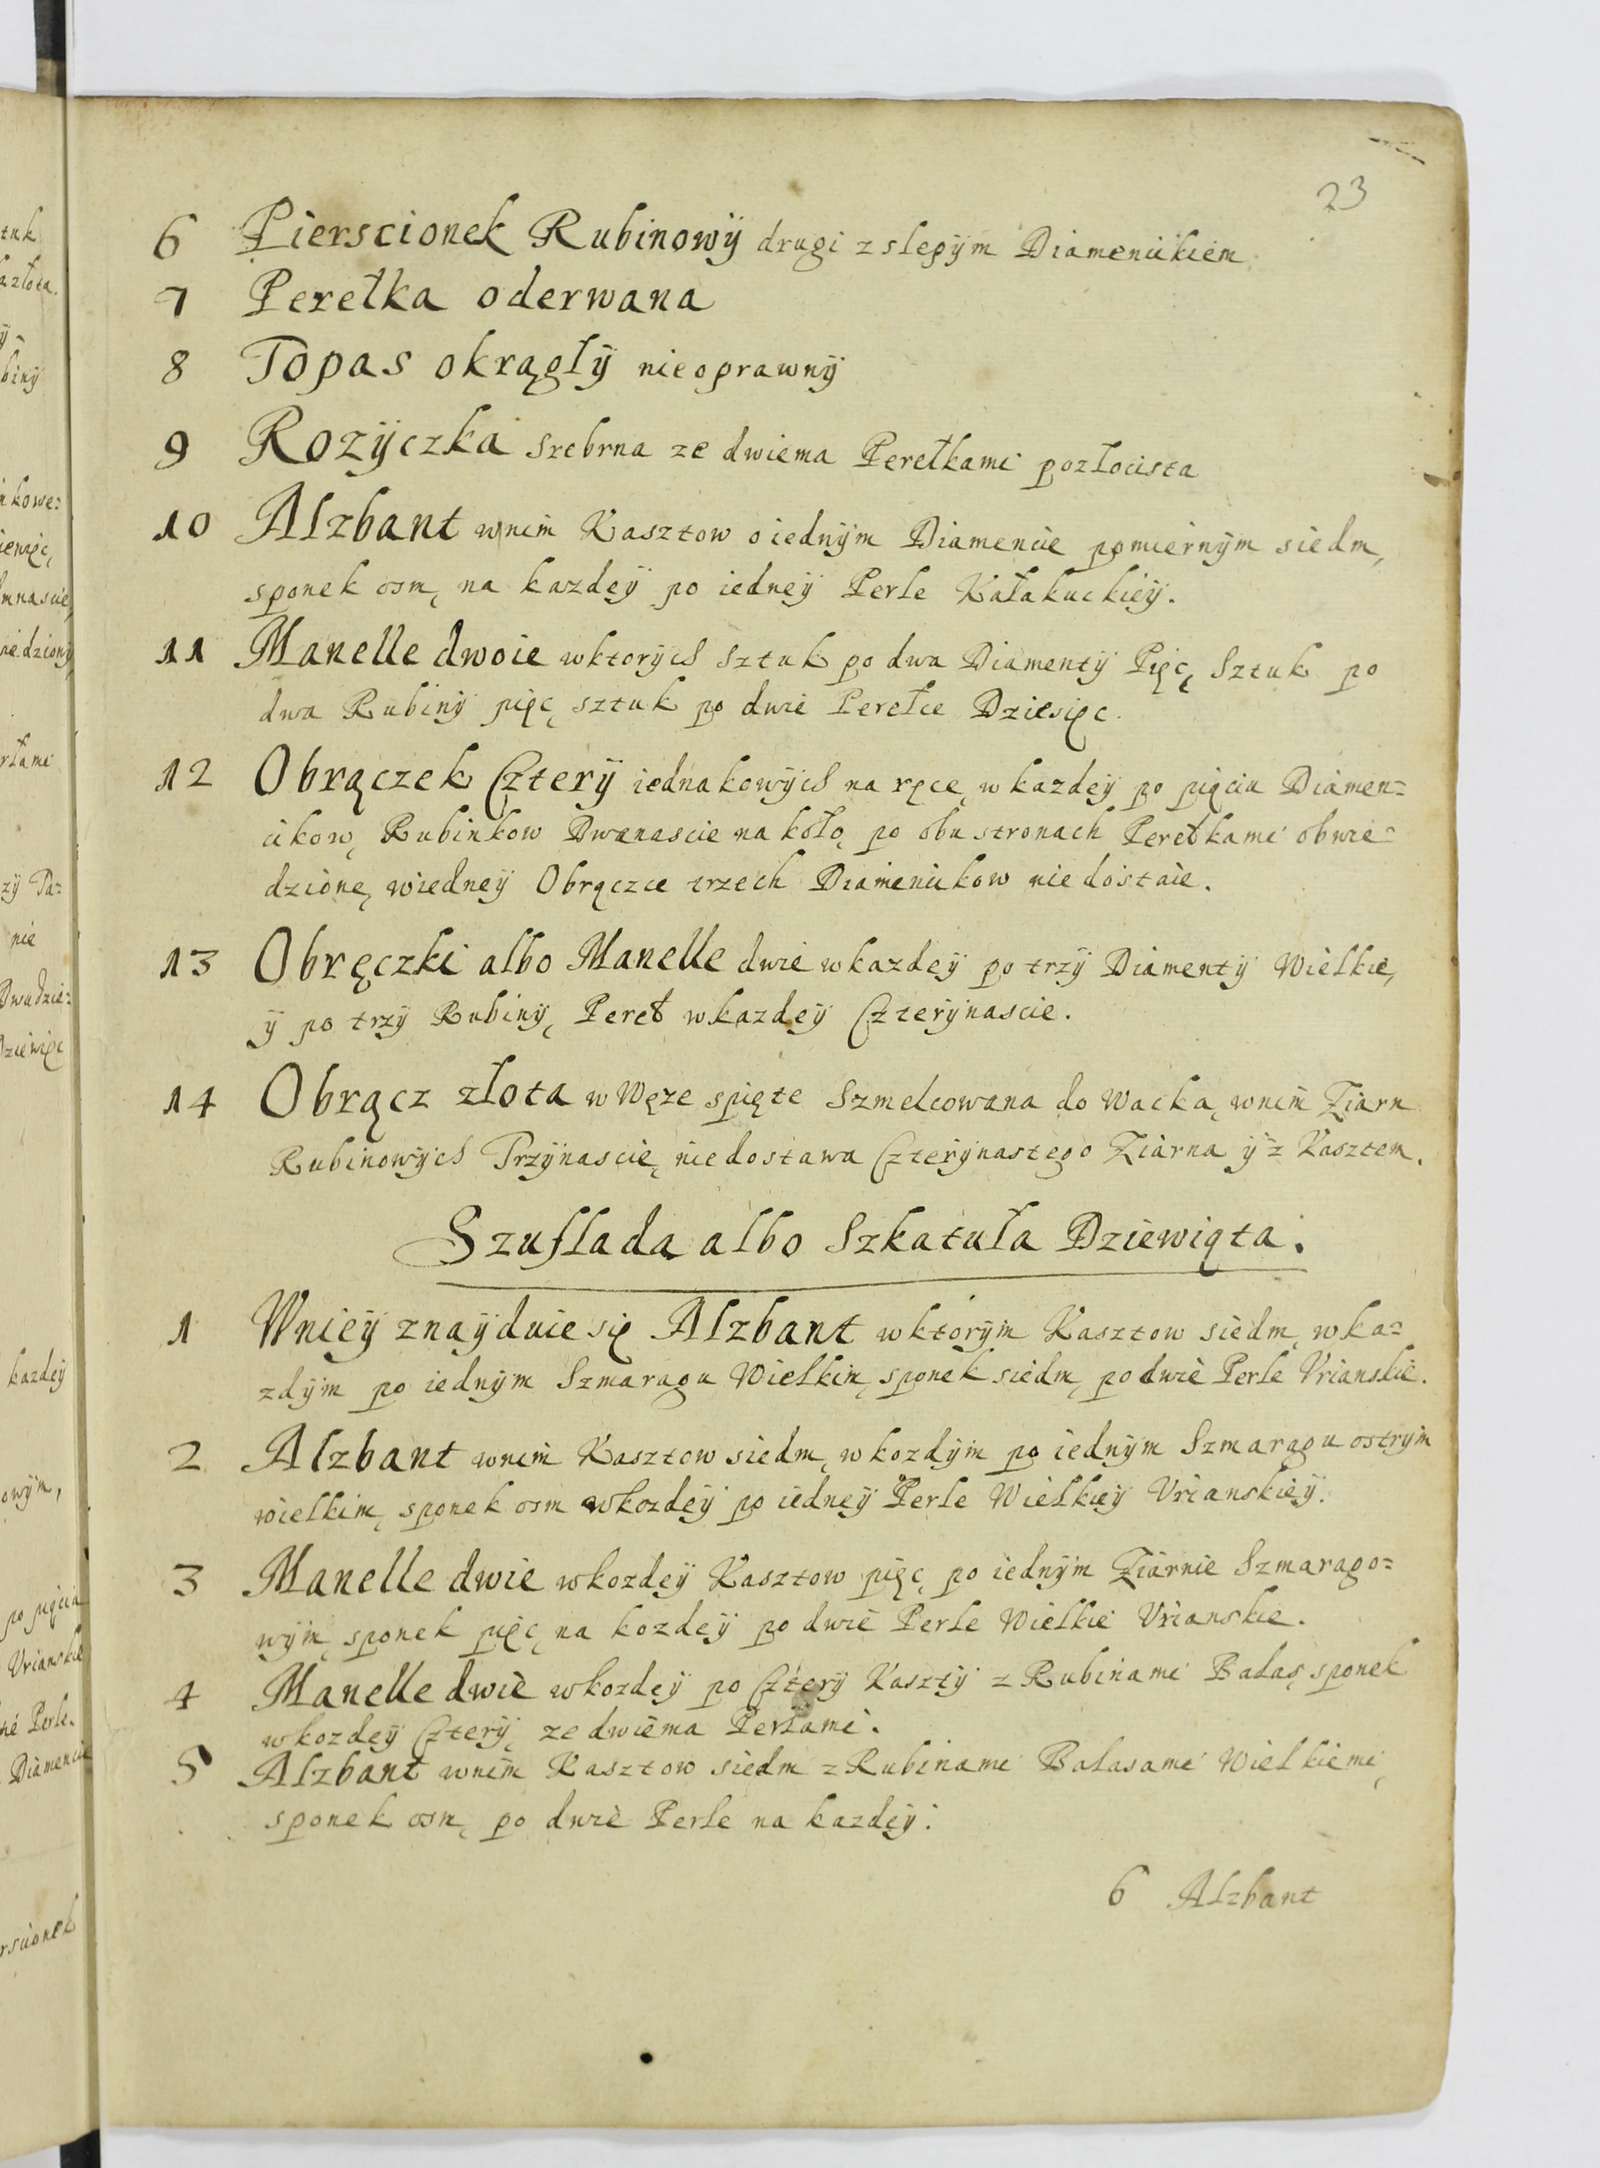 23
6 Pierscionek Rubinowÿ drugi z slepÿm Diamencikiem
7 Perełka oderwana
8 Topas okrągłÿ nieoprawnÿ
9 Rozÿczka Srebrna ze dwiema Perełkami pozłocista
10 Alzbant wnim Kasztow o iednÿm Diamencie pomiernÿm siedm,
sponek osm, na kazdeÿ po iedneÿ Perle Kałakuckieÿ.
11 Manelle dwoie wktorÿch Sztuk po dwa Diamentÿ Pięc, Sztuk po
dwa Rubinÿ pięc, sztuk po dwie Perełce Dziesięc.
12 Obrączek Czterÿ iednakowÿch na ręce, w kazdeÿ po pięciu Diamen=
cikow, Rubinkow Dwanascie na koło, po obu stronach Perełkami obwie=
dzione, wiedneÿ Obrączce trzech Diamencikow nie dostaie.
13 Obręczki albo Manelle dwie w kazdeÿ po trzÿ Diamentÿ Wielkie,
ÿ po trzÿ Rubinÿ, Pereł wkazdeÿ Czterÿnascie.
14 Obrącz złota w Węze spięte Szmelcowana do Wacka, wnim Ziarn
Rubinowÿch Trzÿnascie, niedostawa Czterÿnastego Ziarna ÿ z Kasztem.
Szuflada albo Szkatuła Dziewiąta.
1 Wnieÿ znaÿduie się Alzbant w ktorÿm Kasztow siedm, w ka=
zdÿm po iednÿm Szmaragu Wielkim, sponek siedm, po dwie Perle Vrianskie.
2 Alzbant wnim Kasztow siedm, w kozdÿm po iednÿm Szmaragu ostrÿm
wielkim, sponek osm wkozdeÿ po iedneÿ Perle Wielkieÿ Vrianskieÿ.
3 Manelle dwie wkozdeÿ Kasztow pięc, po iednÿm Ziarnie Szmarago=
wÿm, sponek pięc, na kozdeÿ po dwie Perle Wielkie Vrianskie.
4 Manelle dwie wkozdeÿ po Czterÿ Kasztÿ z Rubinami Balas, sponek
wkozdeÿ Czterÿ, ze dwiema Perłami.
5 Alzbant wnim Kasztow siedm z Rubinami Balasami Wielkiemi,
sponek osm, po dwie Perle na kazdeÿ.
6 Alzbant